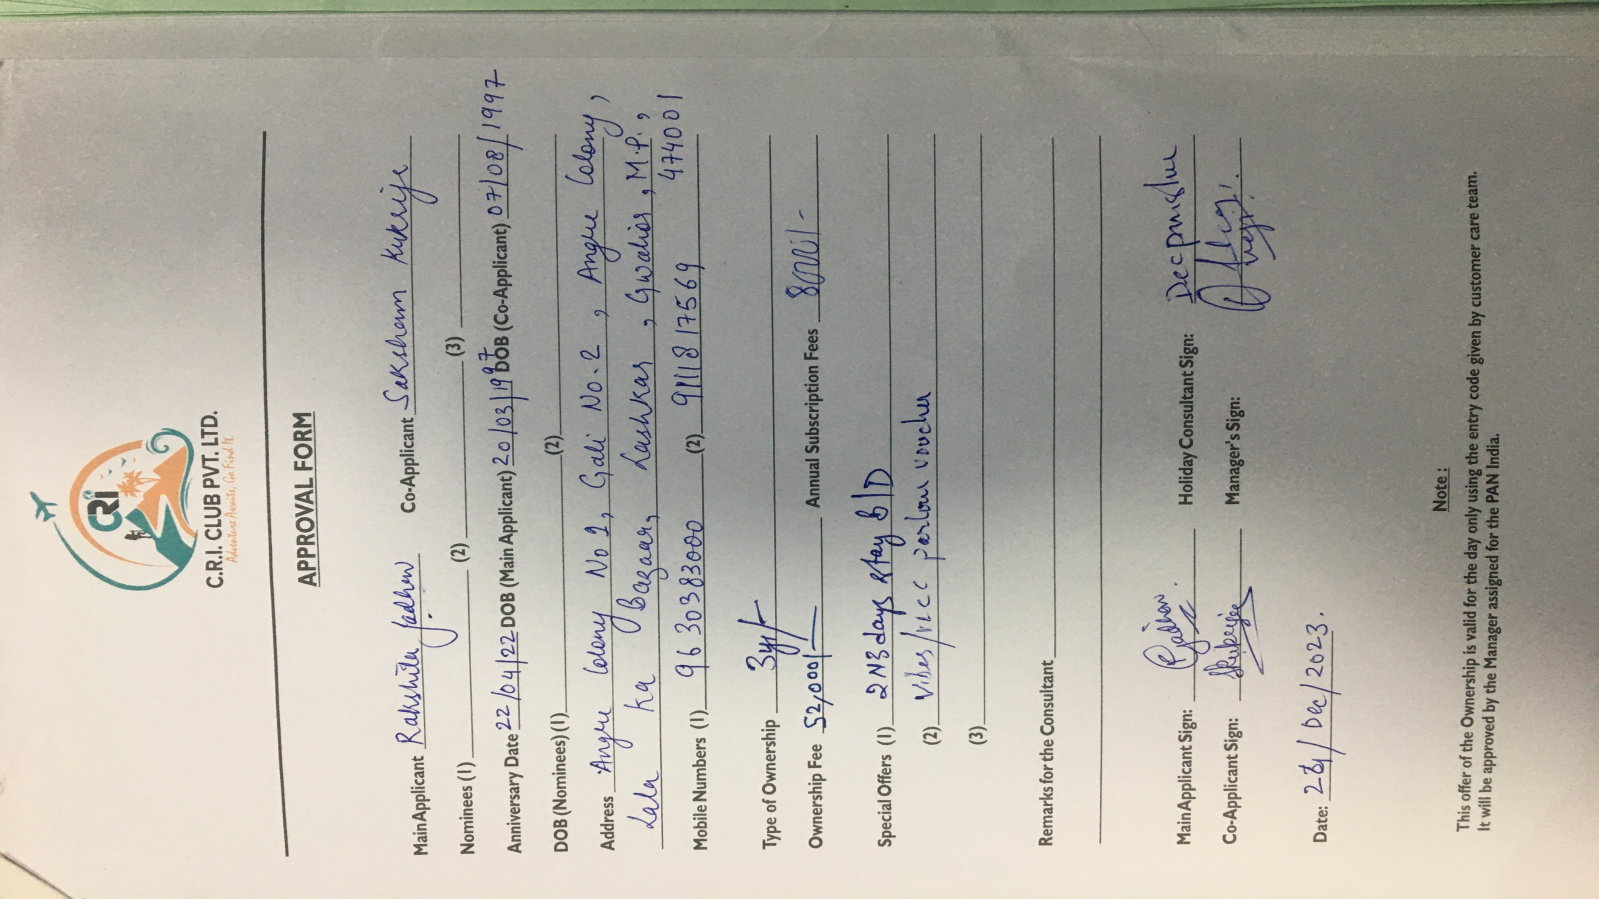 CRI
C.R.I. CLUB PVT. LTD.
Adventure Awaits, Go Find It.
APPROVAL FORM
Main Applicant Rakshita Jadhav Co-Applicant Saksham Kukreja
Nominees (1) (2) (3)
Anniversary Date 22/04/22 DOB (Main Applicant) 20/03/1997 DOB (Co-Applicant) 07/08/1997
DOB (Nominees) (1) (2)
Address Angre Colony No 2, Gali No. 2, Angre Colony,
Lala ka Bazaar, Lashkar, Gwalior, M.P.,
474001
Mobile Numbers (1) 9630383000 (2) 9111817569
Type of Ownership 3yr
Ownership Fee 52,000/- Annual Subscription Fees
Special Offers (1) 2N3days stay B/D
(2) Vibes/vlcc parlour voucher
(3)
Remarks for the Consultant
Main Applicant Sign: RJadhav Holiday Consultant Sign:
Co-Applicant Sign: SKukreja Manager's Sign:
Date: 23/Dec/2023.
Note :
This offer of the Ownership is valid for the day only using the entry code given by customer care team.
It will be approved by the Manager assigned for the PAN India.